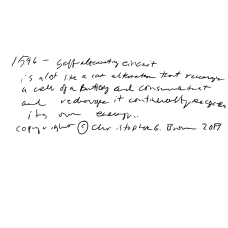 1596 - Self allocating circuit
is a lot like a car alternator that recharges
a cell of a battery and consumes that
and recharges it continually recharges
its own energy..
copyright © Christopher G. Brown 2019